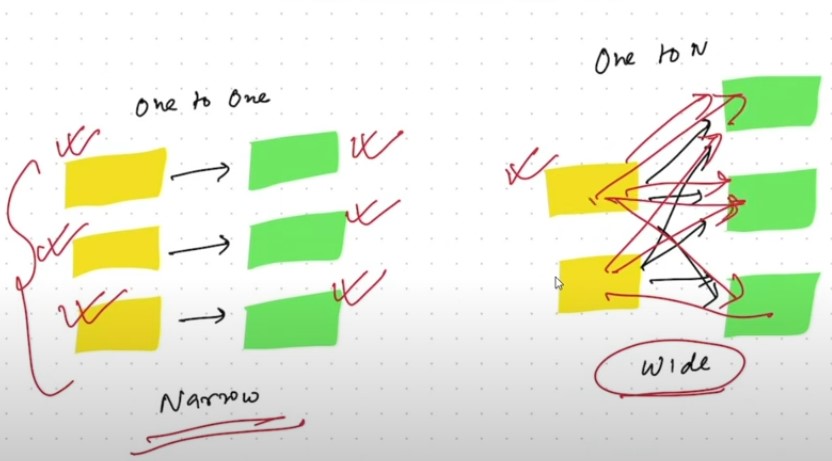 One to One
Narrow
One to N
Wide